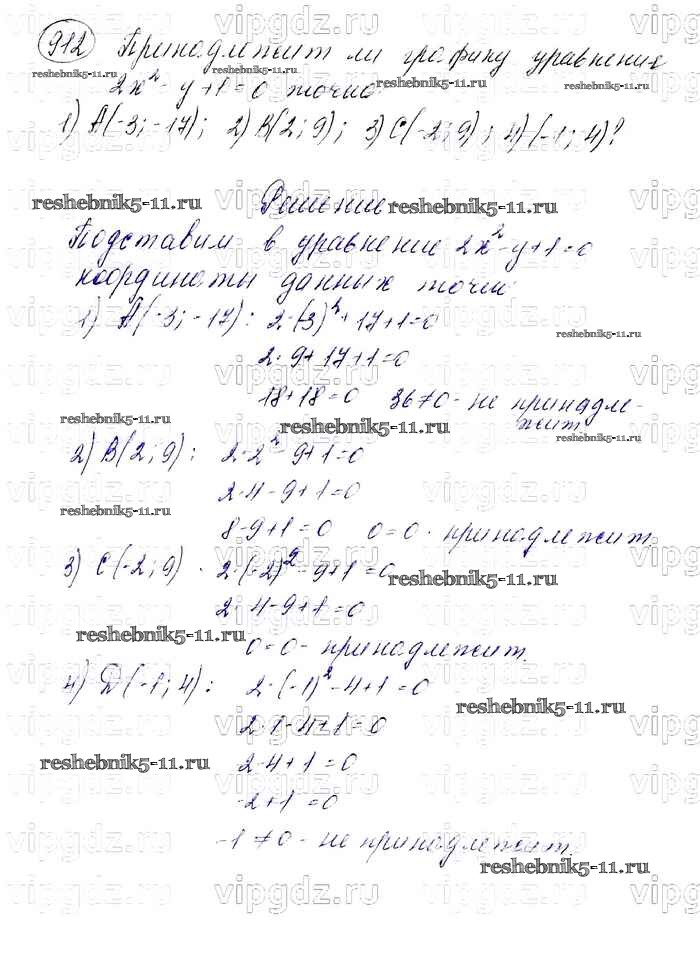 912 Принадлежит ли графику уравнения
2x² - y + 1 = 0 точка:
1) A(-3; -17); 2) B(2; 9); 3) C(-2; 9); 4) (-1; 4)?
Решение
Подставим в уравнение 2x² - y + 1 = 0
координаты данных точек
1) A(-3; -17): 2·(3)² + 17 + 1 = 0
2·9 + 17 + 1 = 0
18 + 18 = 0 36 ≠ 0 - не принадле-
жит
2) B(2; 9): 2·2² - 9 + 1 = 0
2·4 - 9 + 1 = 0
8 - 9 + 1 = 0 0 = 0 - принадлежит
3) C(-2; 9) · 2·(-2)² - 9 + 1 = 0
2·4 - 9 + 1 = 0
0 = 0 - принадлежит.
4) D(-1; 4): 2·(-1)² - 4 + 1 = 0
2·1 - 4 + 1 = 0
2 - 4 + 1 = 0
-2 + 1 = 0
-1 ≠ 0 - не принадлежит.
vipgdz.ru
reshebnik5-11.ru